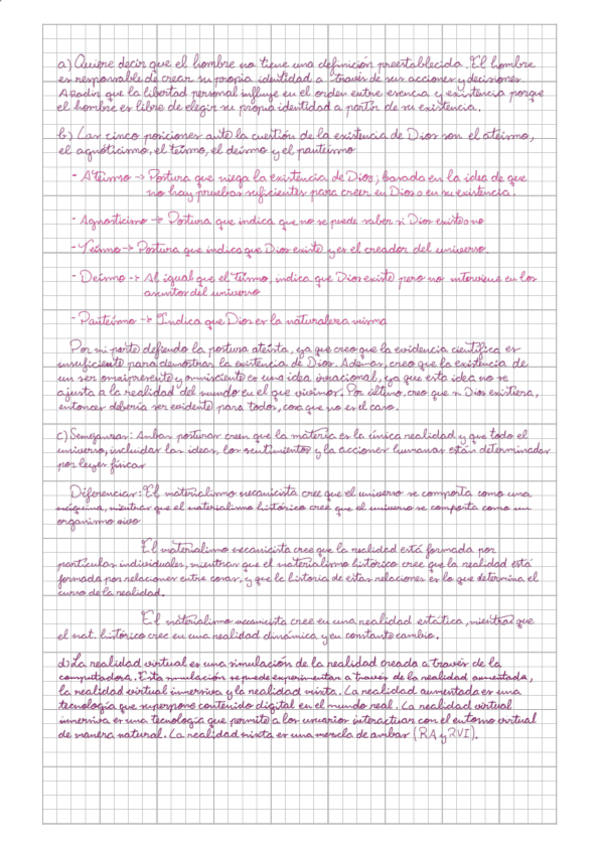 a) Quiere decir que el hombre no tiene una definición preestablecida. El hombre
es responsable de crear su propia identidad a través de sus acciones y decisiones.
Añadir que la libertad personal influye en el orden entre esencia y existencia porque
el hombre es libre de elegir su propia identidad a partir de su existencia.
b) Las cinco posiciones ante la cuestión de la existencia de Dios son el ateísmo,
el agnosticismo, el teísmo, el deísmo y el panteísmo
- Ateísmo -> Postura que niega la existencia de Dios; basada en la idea de que
no hay pruebas suficientes para creer en Dios o en su existencia.
- Agnosticismo -> Postura que indica que no se puede saber si Dios existe o no
- Teísmo -> Postura que indica que Dios existe y es el creador del universo.
- Deísmo -> Al igual que el teísmo, indica que Dios existe pero no interviene en los
asuntos del universo
- Panteísmo -> Indica que Dios es la naturaleza misma
Por mi parte defiendo la postura ateísta, ya que creo que la evidencia científica es
insuficiente para demostrar la existencia de Dios. Además, creo que la existencia de
un ser omnipresente y omnisciente es una idea irracional, ya que esta idea no se
ajusta a la realidad del mundo en el que vivimos. Por último, creo que si Dios existiera,
entonces debería ser evidente para todos, cosa que no es el caso.
c) Semejanzas: Ambas posturas creen que la materia es la única realidad y que todo el
universo, incluidas las ideas, los sentimientos y la acciones humanas están determinadas
por leyes físicas
Diferencias: El materialismo mecanicista cree que el universo se comporta como una
máquina, mientras que el materialismo histórico cree que el universo se comporta como un
organismo vivo
El materialismo mecanicista cree que la realidad está formada por
partículas individuales, mientras que el materialismo histórico cree que la realidad está
formada por relaciones entre cosas, y que la historia de estas relaciones es lo que determina el
curso de la realidad.
El materialismo mecanicista cree en una realidad estática, mientras que
el mat. histórico cree en una realidad dinámica y en constante cambio.
d) La realidad virtual es una simulación de la realidad creada a través de la
computadora. Esta simulación se puede experimentar a través de la realidad aumentada,
la realidad virtual inmersiva y la realidad mixta. La realidad aumentada es una
tecnología que superpone contenido digital en el mundo real. La realidad virtual
inmersiva es una tecnología que permite a los usuarios interactuar con el entorno virtual
de manera natural. La realidad mixta es una mezcla de ambas (RA y RVI).